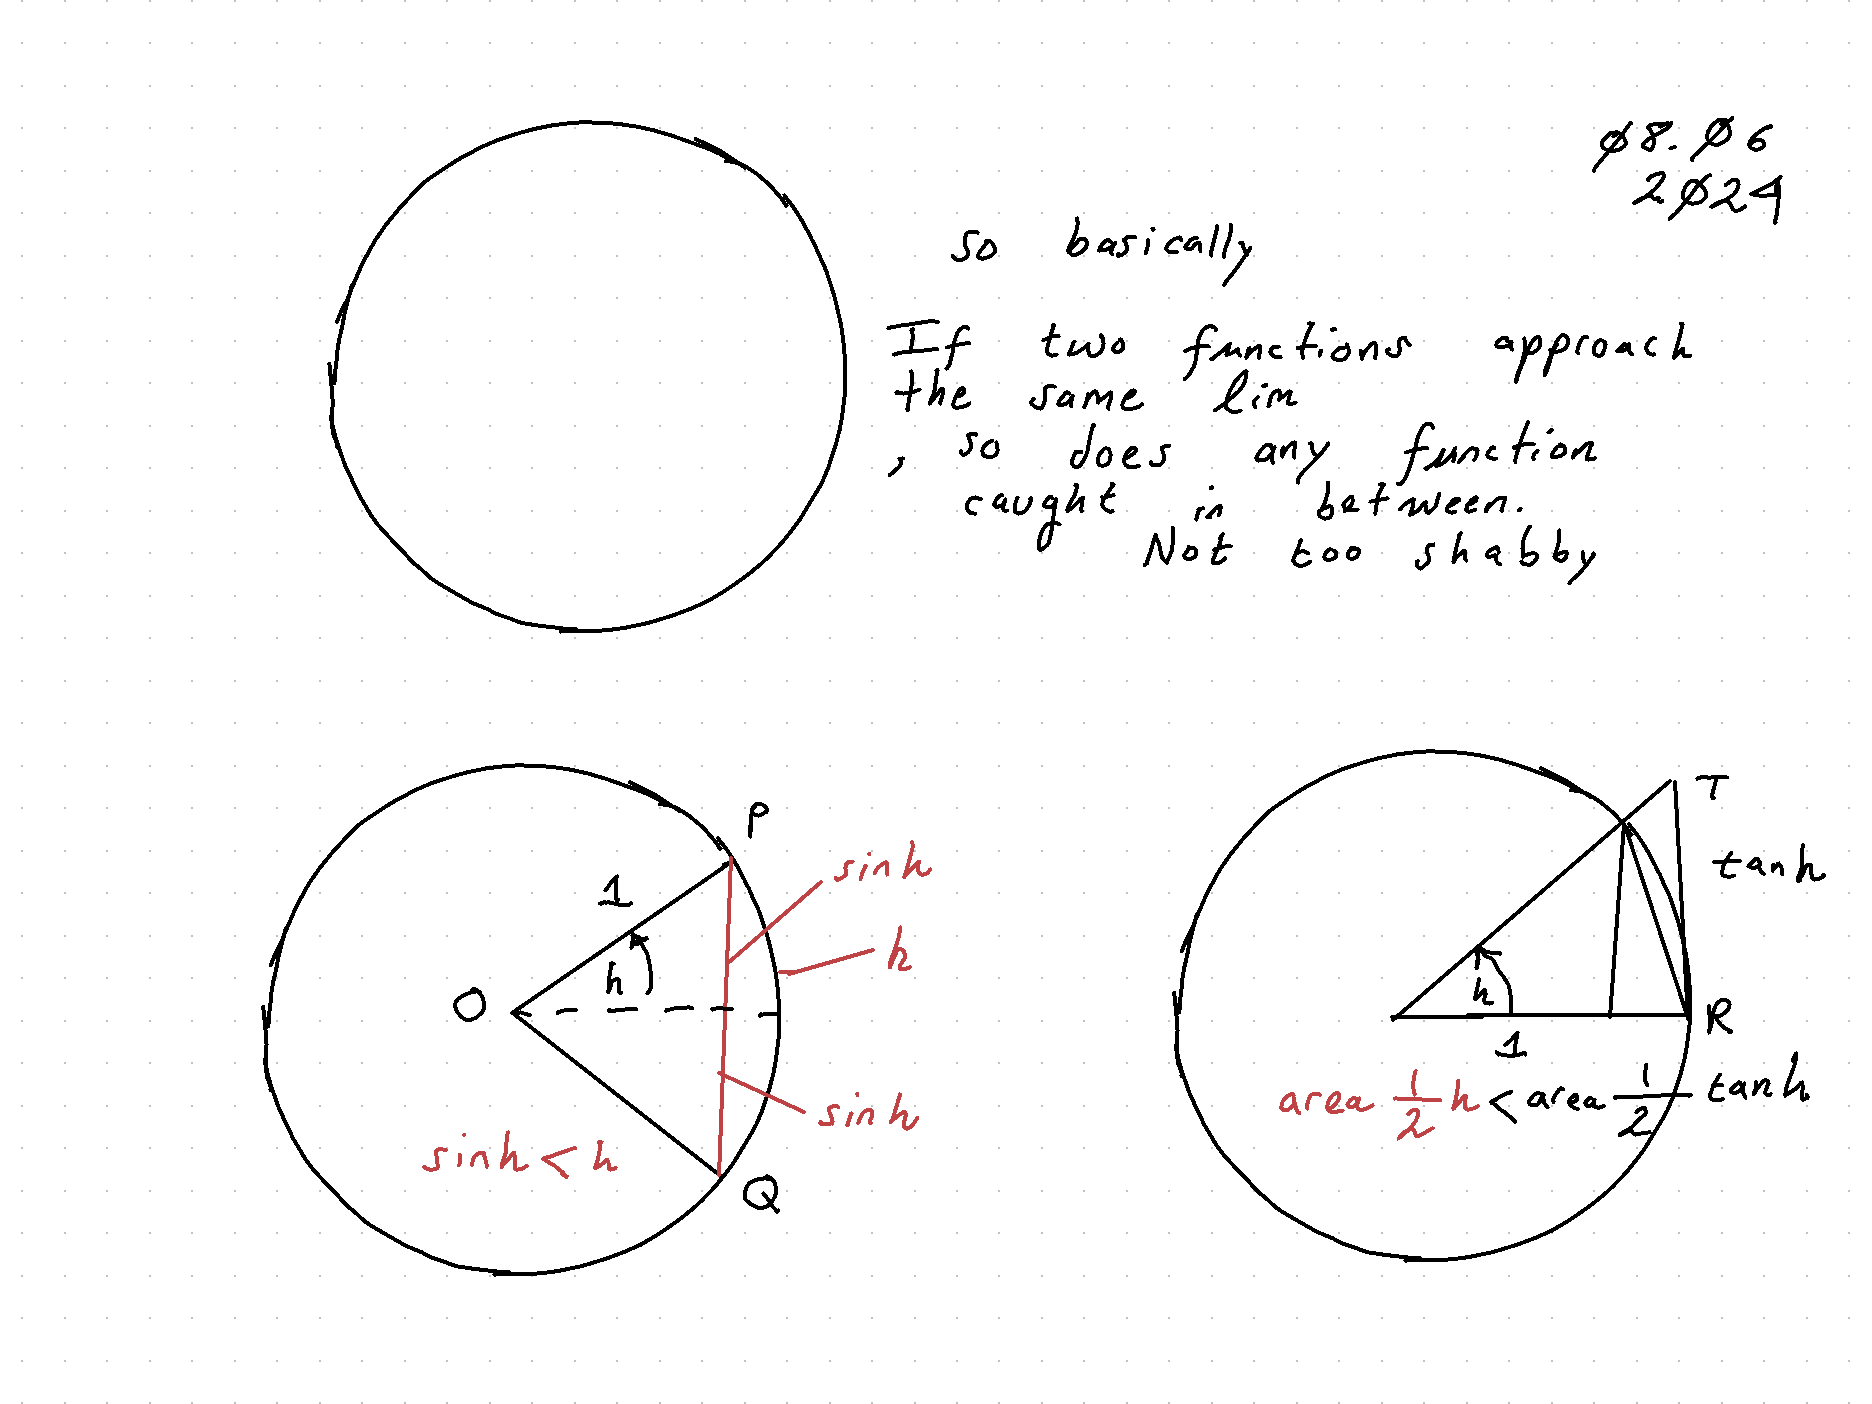 Ø8.Ø6
2Ø24
so basically
If two functions approach
the same lim
, so does any function
caught in between.
Not too shabby
P
sinh
1
h
h
O
sinh
sinh < h
Q
T
tanh
h
R
1
area 1/2 h < area 1/2 tanh